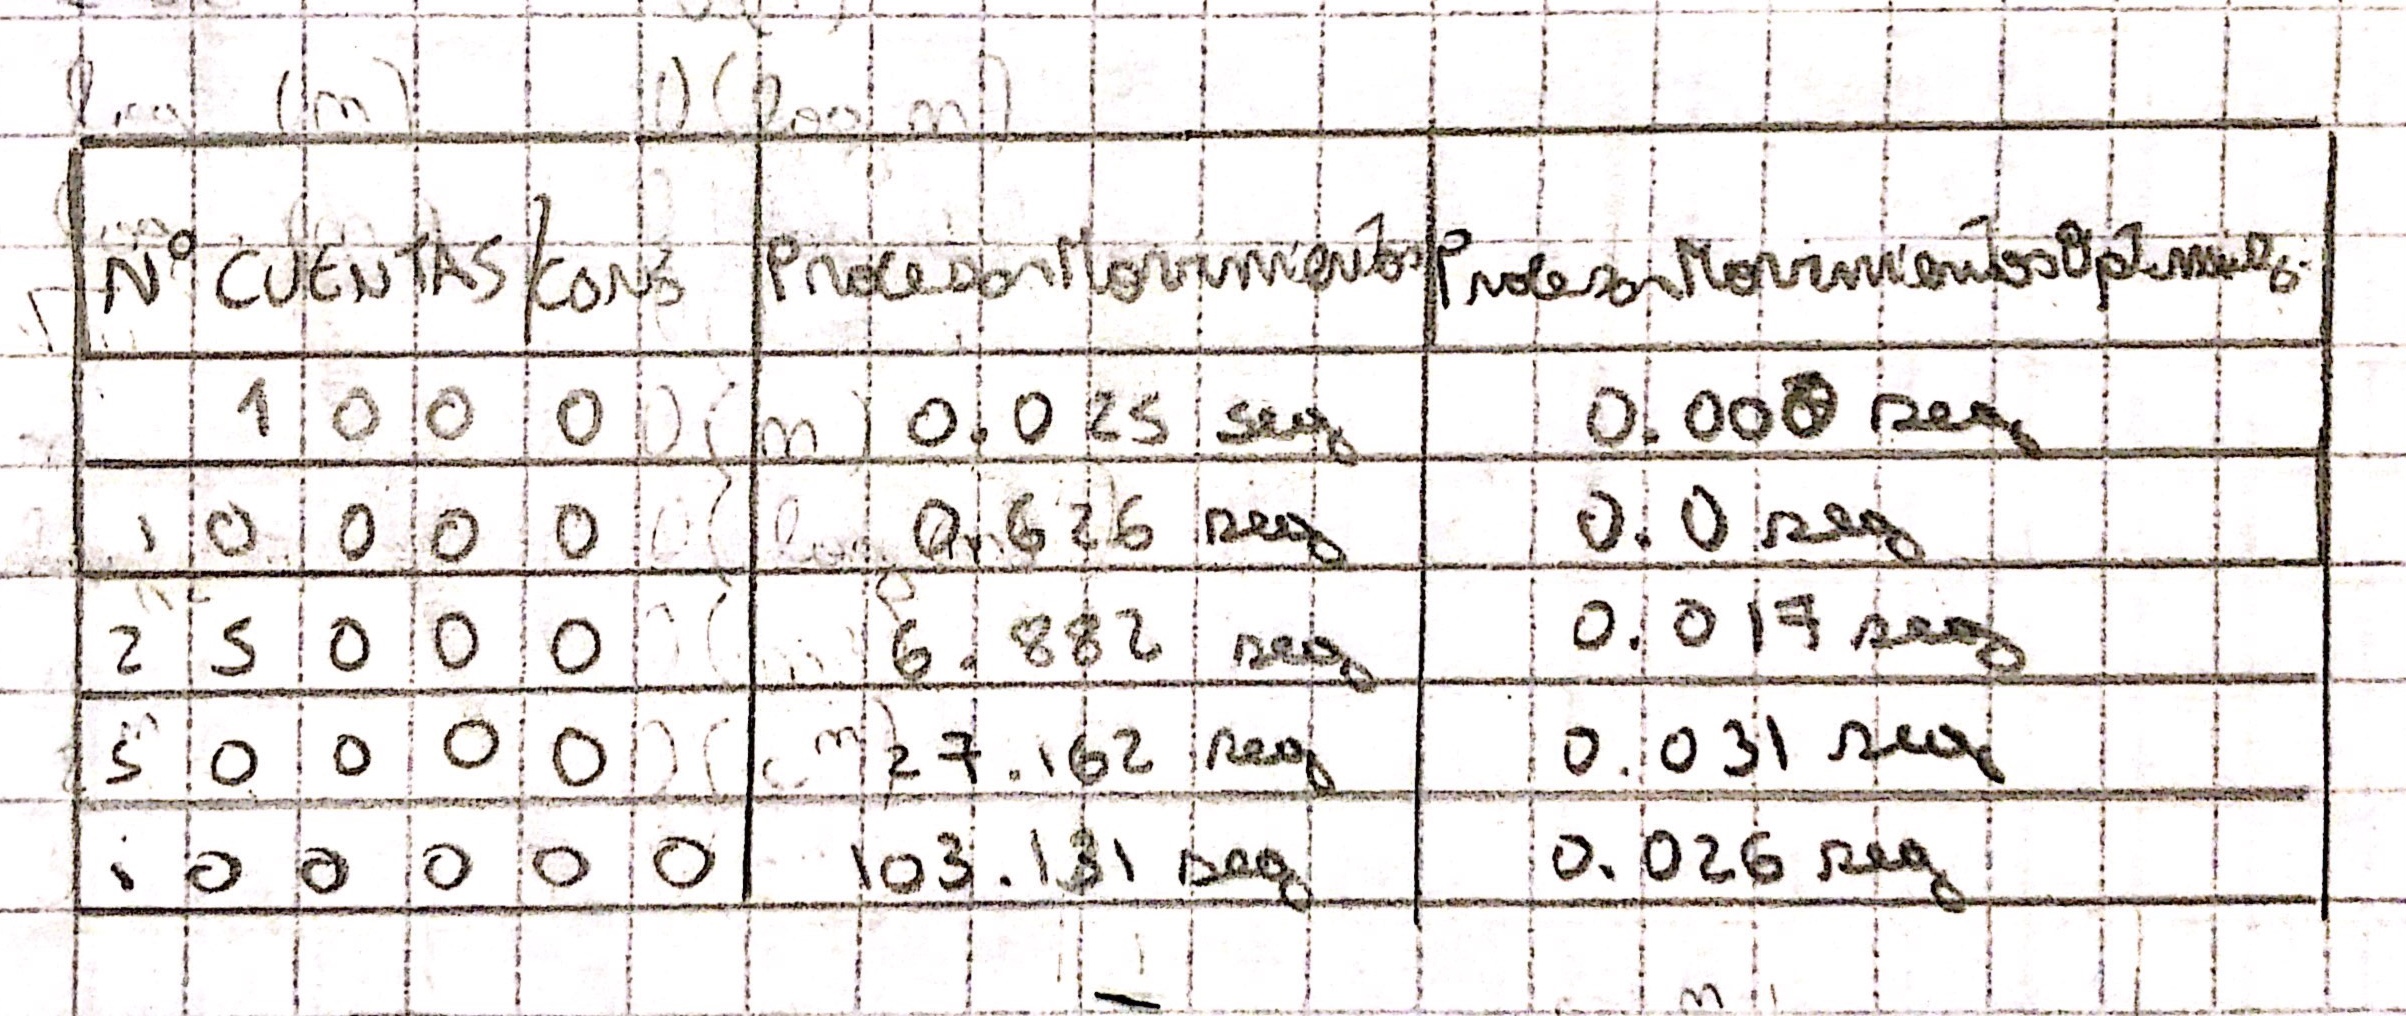 Nº CUENTAS/CONS ProcesarMovimientos ProcesarMovimientosOptimizado
1000 0.025 seg 0.000 seg
10000 0.626 seg 0.0 seg
25000 6.882 seg 0.017 seg
50000 27.162 seg 0.031 seg
100000 103.131 seg 0.026 seg